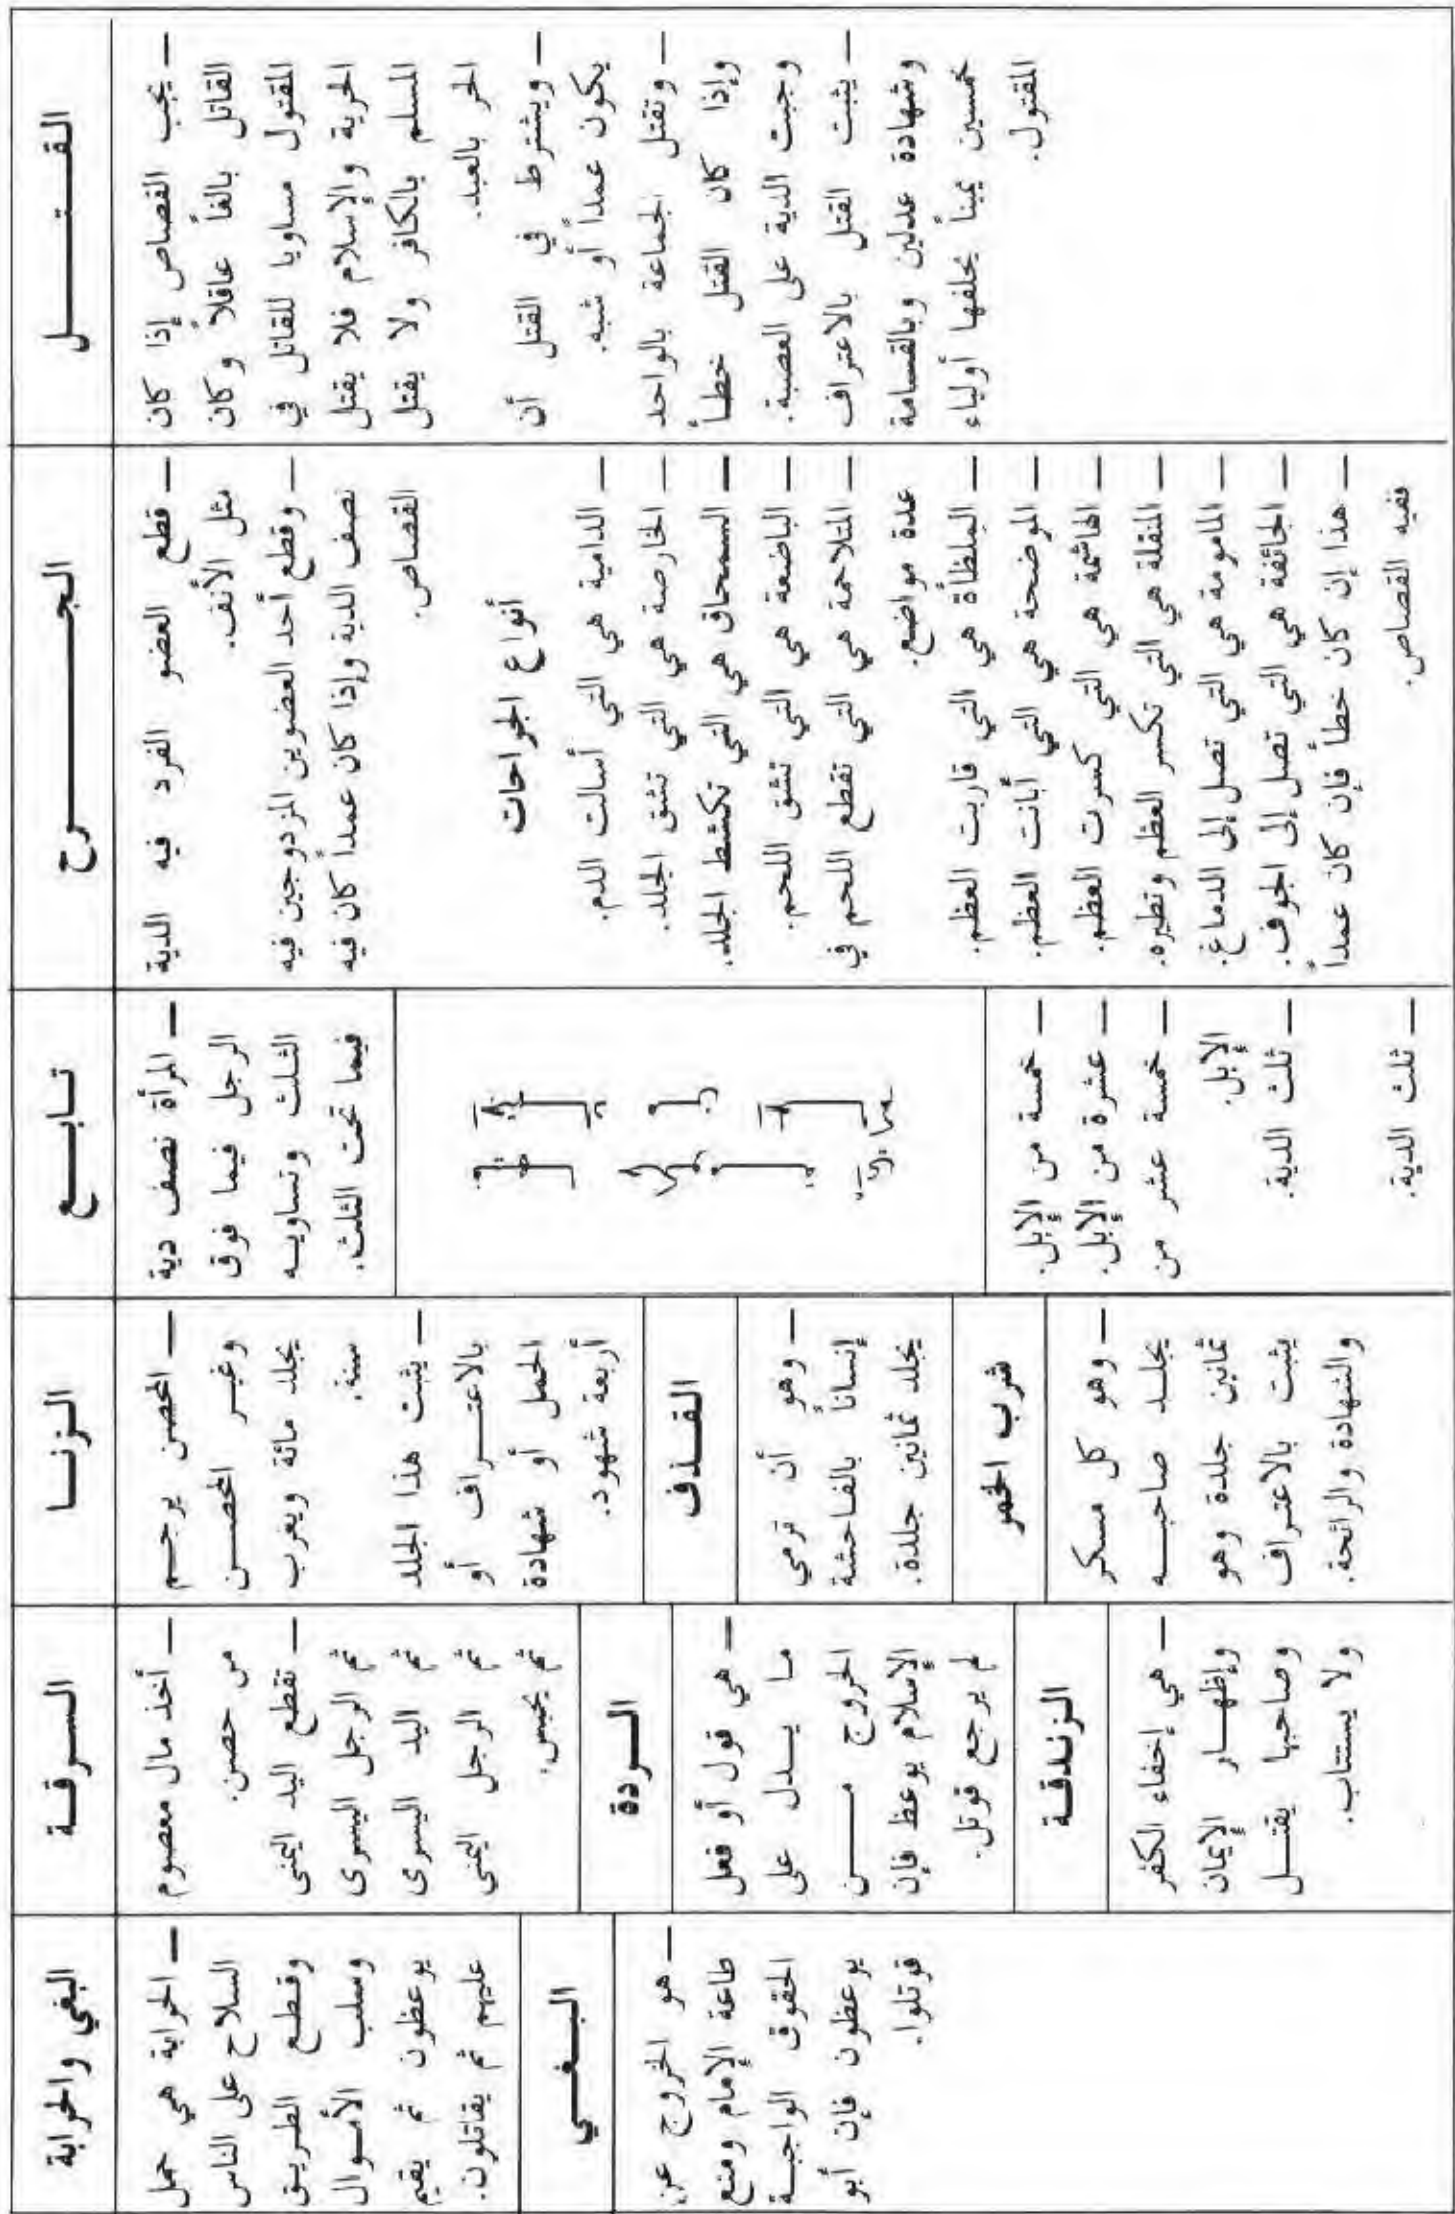 القـتــــل
— يجب القصاص إذا كان
القاتل بالغاً عاقلاً وكان
المقتول مساويا للقاتل في
الحرية والإسلام فلا يقتل
المسلم بالكافر ولا يقتل
الحر بالعبد.
— ويشترط في القتل أن
يكون عمداً أو شبه.
— وتقتل الجماعة بالواحد
وإذا كان القتل خطأ
وجبت الدية على العصبة.
— يثبت القتل بالاعتراف
وشهادة عدلين وبالقسامة
خمسين يميناً يحلفها أولياء
المقتول.
الجــــرح
— قطع العضو الفرد فيه الدية
مثل الأنف.
— وقطع أحد العضوين المزدوجين فيه
نصف الدية وإذا كان عمداً كان فيه
القصاص.
أنواع الجراحات
— الدامية هي التي أسالت الدم.
— الخارصة هي التي تشق الجلد.
— السمحاق هي التي تكشط الجلد.
— الباضعة هي التي تشق اللحم.
— المتلاحمة هي التي تقطع اللحم في
عدة مواضع.
— الملطأة هي التي قاربت العظم.
— الموضحة هي التي أبانت العظم.
— الهاشمة هي التي كسرت العظم.
— المنقلة هي التي تكسر العظم وتطيره.
— المامومة هي التي تصل إلى الدماغ.
— الجائفة هي التي تصل إلى الجوف.
— هذا إن كان خطأ فإن كان عمداً
ففيه القصاص.
تـابــع
— المرأة نصف دية
الرجل فيما فوق
الثلث وتساويــه
فيما تحت الثلث.
— خمسة من الإبل.
— عشرة من الإبل.
— خمسة عشر من
الإبل.
— ثلث الدية.
— ثلث الدية.
الـزنــا
— المحصن يرجــم
وغيــر المحصــن
يجلد مائة ويغرب
سنة.
— يثبت هذا الجلد
بالاعتــراف أو
الحمل أو شهادة
أربعة شهود.
القــذف
— وهو أن ترمي
إنساناً بالفاحشة
يجلد ثمانين جلدة.
شرب الخمر
— وهو كل مسكر
يجلــد صاحبــه
ثمانين جلدة وهو
يثبت بالاعتراف
والشهادة والرائحة.
الـسـرقــة
— أخذ مال معصوم
من حصن.
— تقطع اليد اليمنى
ثم الرجل اليسرى
ثم اليد اليسرى
ثم الرجل اليمنى
ثم يحبس.
الــردة
— هي قول أو فعل
مـا يــدل على
الخروج مــــن
الإسلام يوعظ فإن
لم يرجع قوتل.
الزندقــة
— هي إخفاء الكفر
وإظهــار الإيمان
وصاحبها يقتــــل
ولا يستتاب.
البغي والحرابة
— الحرابة هي حمل
السلاح على الناس
وقـطـع الطـريـق
وسلب الأمــوال
يوعظون ثم يقيم
عليهم ثم يقاتلون.
الـبـغــي
— هو الخروج عن
طاعة الإمام ومنع
الحقوق الواجبــة
يوعظون فإن أبو
قوتلوا.